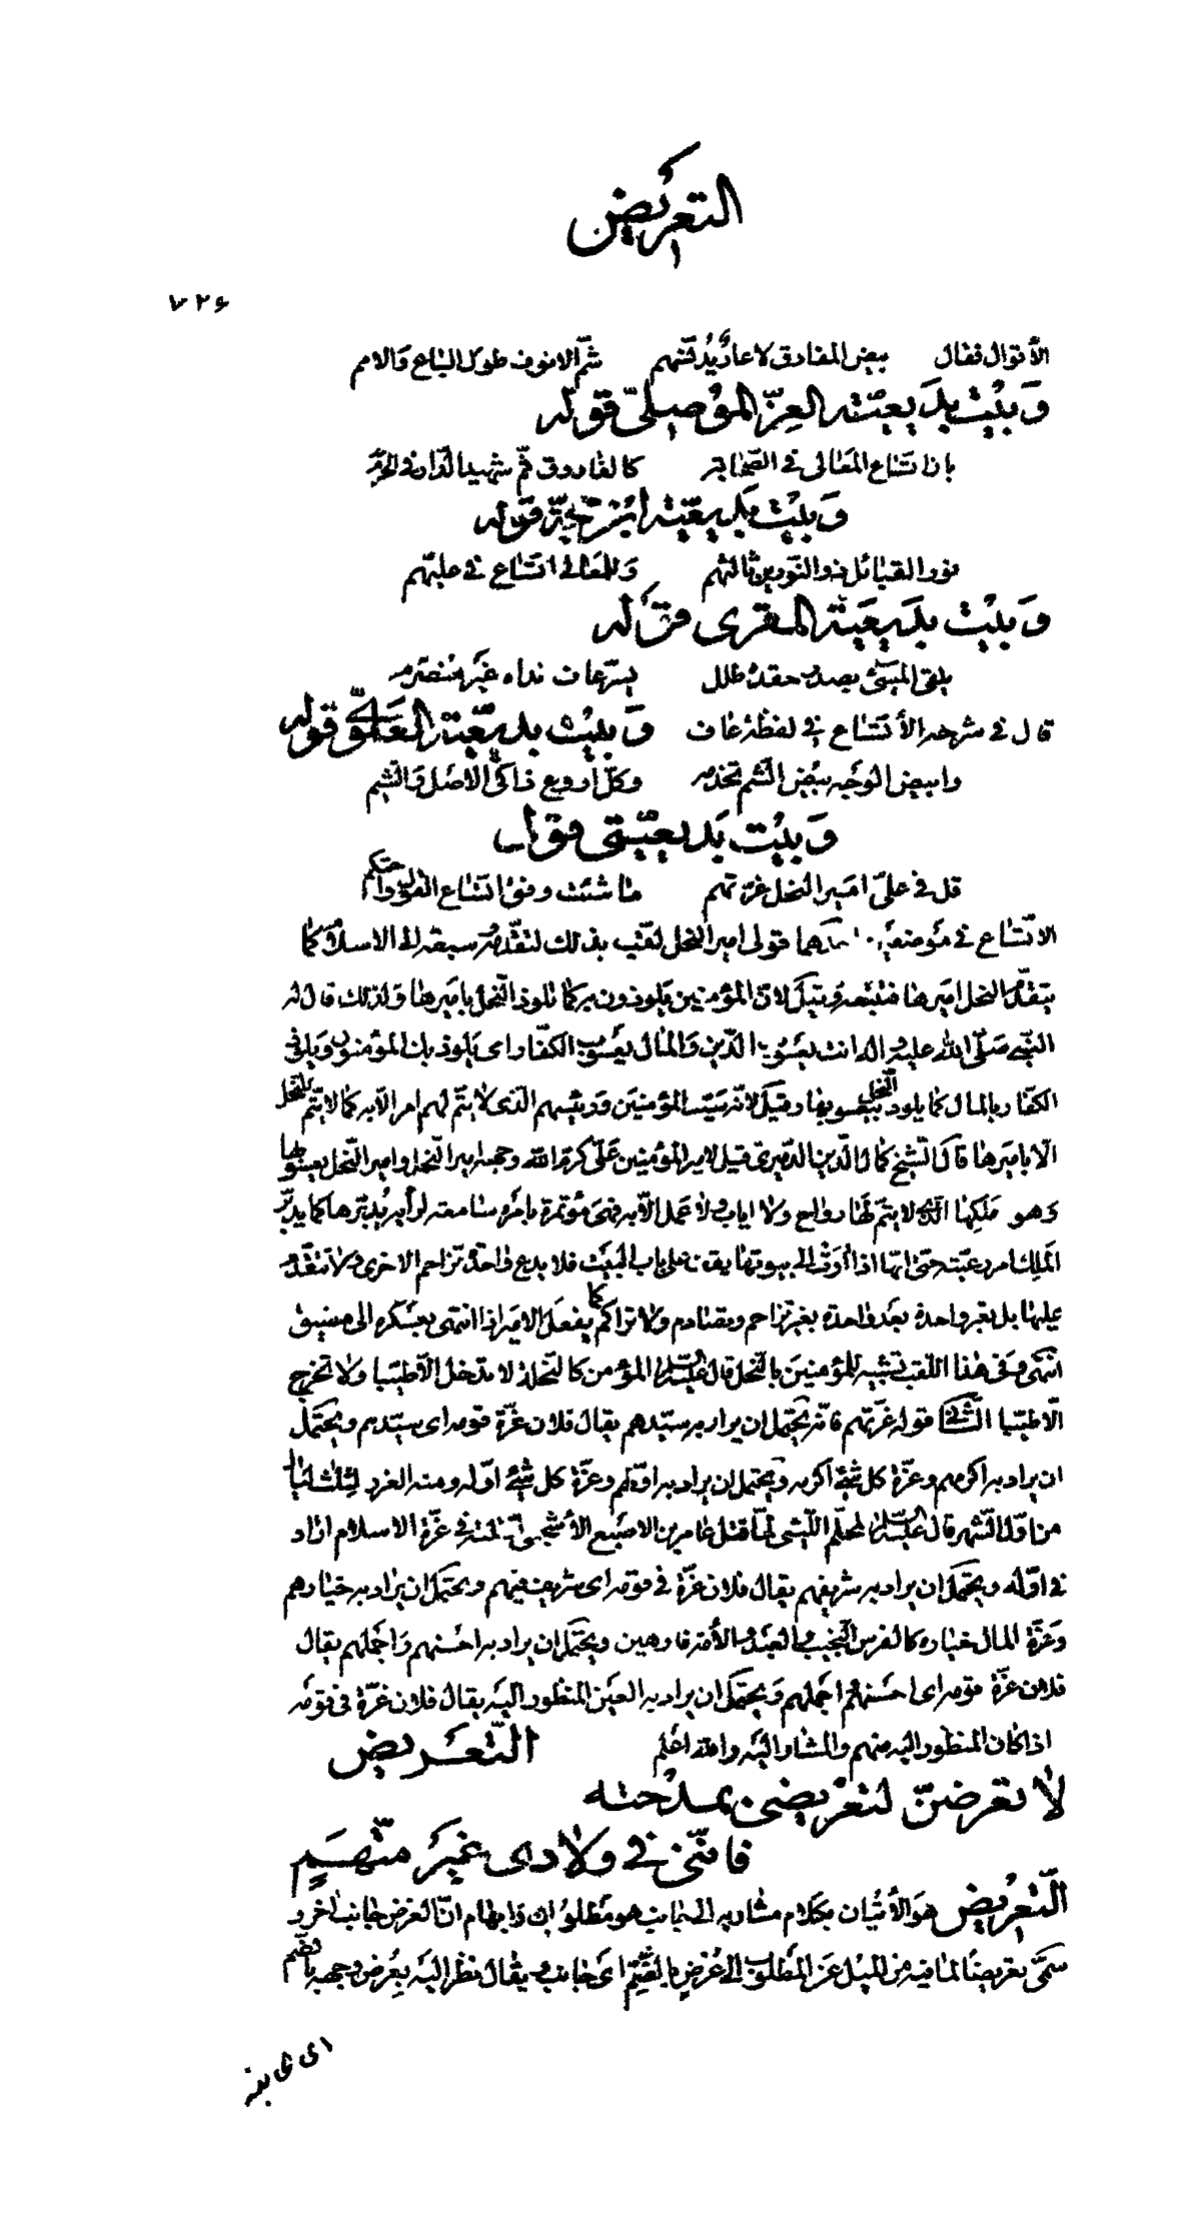 التعريض
٧٢۶
الأقوال فقال بيض المفارق لا عاد يدقتهم شمّ الانوف طول الباع والامم
وبيت بديعيّته العزّ الموصلي قوله
بان اتساع المعالى فى الصحابة كالفاروق ثمّ شهيد الدار فى الحرم
وبيت بديعيّة ابن حجّة قوله
نور القبائل ذو النورين ثالثهم وللمعالى اتساع فى عليّهم
وبيت بديعيّة المقرى قوله
يلقى المسئ بصدر حقده طلل بنزعات نداه غير منصرم
قال فى شرحه الأتساع فى لفظة عاف وبيت بديعيّة العلوىّ قوله
وابيض الوجه بيض الشم تخدمه وكلّ اروع ذاكى الاصل والشيم
وبيت بديعيّتى قولى
قل فى علىّ امير النحل غرّتهم ما شئت وفق اتساع القول واحتكم
الاتّساع فى موضعين احدهما قولى امير النحل لقّب بذلك لتقدّمه وسبقه الى الاسلام كما
يتقدّم النحل اميرها فتتبعه وقيل لانّ المؤمنين يلوذون به كما تلوذ النحل باميرها ولذلك قال له
النبىّ صلّى الله عليه واله انت يعسوب الدّين والمال يعسوب الكفّار اى يلوذ بك المؤمنون ويلوذ
الكفّار بالمال كما يلوذ النحل بيعسوبها وقيل لانّه سيّد المؤمنين ورئيسهم الّذى لا يتمّ لهم امر الّا به كما لا يتمّ للنحل
الّا باميرها قال الشيخ كمال الدّين الدّميرى قيل لامير المؤمنين علىّ كرّم الله وجهه امير النحل وامير النحل يعسوبها
وهو ملكها الّذى لا يتمّ لها رواح ولا اياب ولا عمل الّا به فهى مؤتمرة بامره سامعة له وانّه يدبّرها كما يدبّر
الملك امر رعيّته حتّى انها اذا اوت الى بيوتها يقف على باب البيت فلا يدع واحدة تزاحم الاخرى ولا تتقدّم
عليها بل تعبر واحدة بعد واحدة بغير تزاحم وتصادم ولا تراكم كما يفعل الامير اذا انتهى بعسكره الى مضيق
انتهى وفى هذا اللقب تشبيه للمؤمنين بالنحل قال عليه السلام المؤمن كالنحلة لا تدخل الّا طيّبا ولا تخرج
الّا طيّبا الثّانى قوله غرّتهم فانّه يحتمل ان يراد به سيّدهم يقال فلان غرّة قومه اى سيّدهم ويحتمل
ان يراد به اكرمهم وغرّة كل شئ اكرمه ويحتمل ان يراد به اوّلهم وغرّة كل شئ اوّله ومنه الغرر لثلث ليال
من اوّل الشهر قال عليه السلام لمحلّم الليثى لمّا قتل عامر بن الاضبع الأشجعى اقتلته فى غرّة الاسلام اراد
فى اوّله ويحتمل ان يراد به شريفهم يقال فلان غرّة فى قومه اى شريف فيهم ويحتمل ان يراد به خيارهم
وغرّة المال خياره كالفرس النجيب والعبد والأمة فارهين ويحتمل ان يراد به احسنهم واجملهم يقال
فلان غرّة قومه اى احسنهم واجملهم ويحتمل ان يراد به العين المنظور اليه يقال فلان غرّة فى قومه
اذا كان المنظور اليه منهم والمشار اليه والله اعلم التّعريض
لا تعرضنّ لتعريضى بمدحته
فانّنى فى ولادى غير متّهم
التّعريض هو الأتيان بكلام مشار به الى جانب هو مطلوبك وايهام انّ الغرض جانب اخر و
سمّى تعريضا لما فيه من الميل عن المطلوب الى عرض بالضّم اى جانب ويقال نظر اليه بعرض وجهه بالضّم
اى جانبه